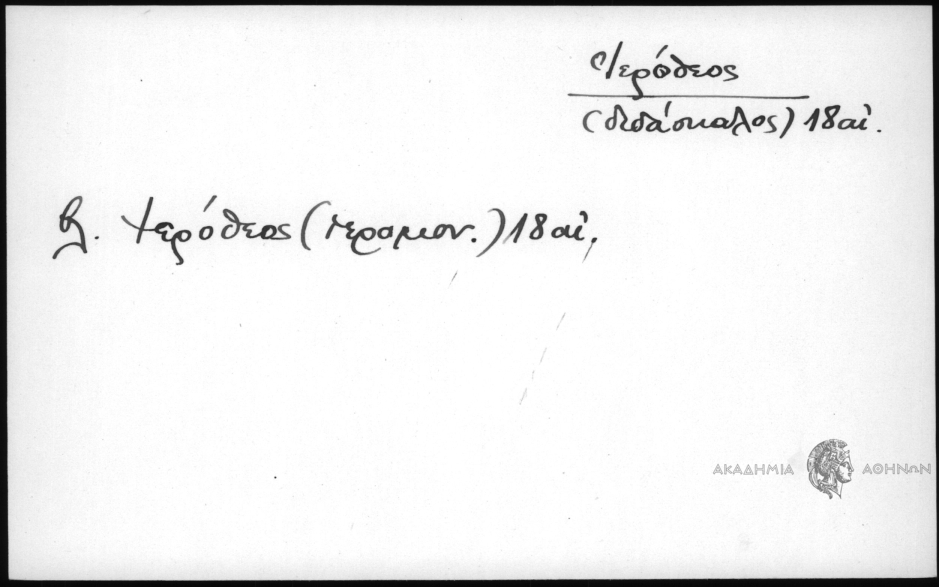 Ἱερόθεος
(διδάσκαλος) 18 αἰ.
βλ. Ἱερόθεος (ἱερομον.) 18 αἰ.
ΑΚΑΔΗΜΙΑ ΑΘΗΝΩΝ